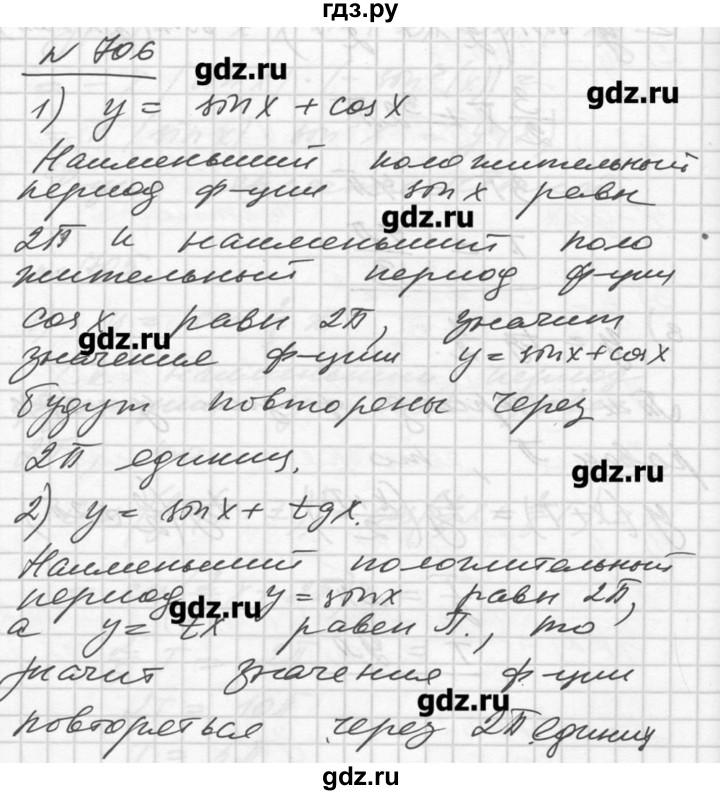 гдз.ру
N 706
gdz.ru
gdz.ru
1) y = sin x + cos x
Наименьший положительный
период ф-ции sin x равн
gdz.ru
2π и наименьший поло
жительный период ф-ции
cos x равн 2π, значит
gdz.ru
значения ф-ции y = sin x + cos x
будут повторены через
2π единиц.
gdz.ru
2) y = sin x + tg x.
Наименьший положительный
период y = sin x равн 2π,
gdz.ru
а y = tx равен π., то
значит значения ф-ции
gdz.ru
повторяться через 2π единиц
gdz.ru